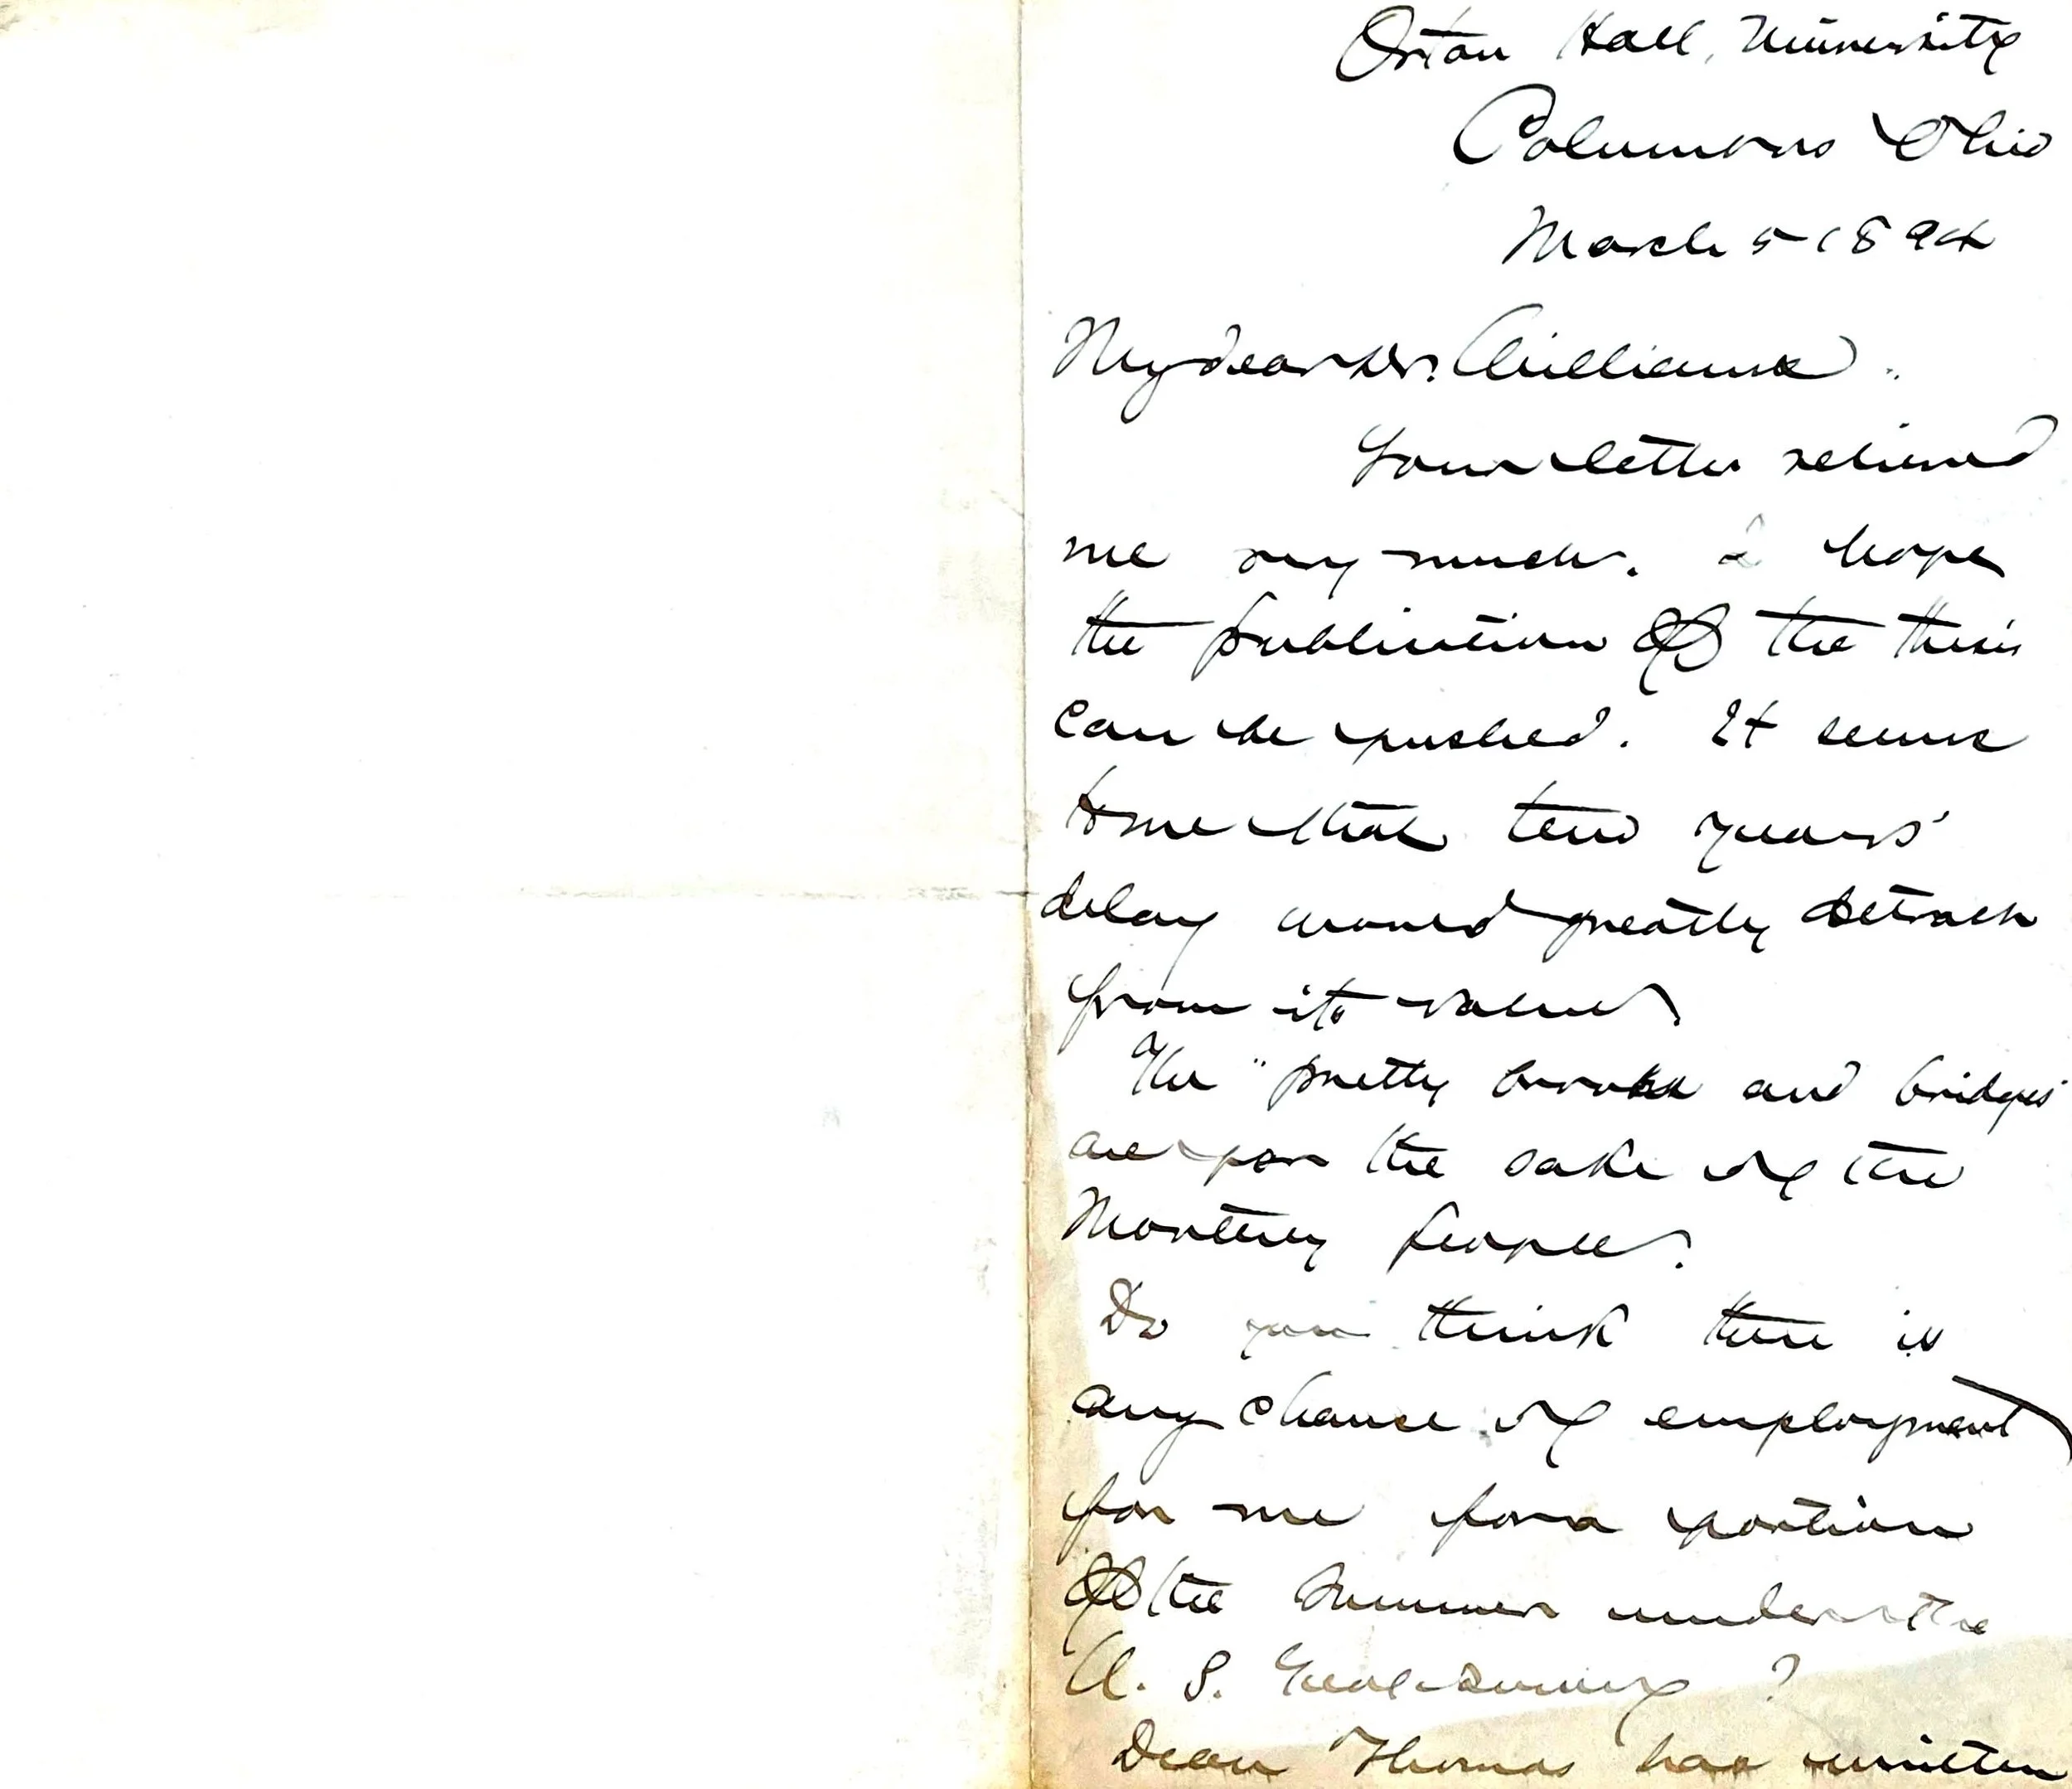 Orton Hall, University
Columbus Ohio
March 5 1894
My dear Dr. Williams.
Your letter relieved
me very much. I hope
the publication of the thesis
can be pushed. It seems
to me that two years'
delay would greatly detract
from its value.
The "pretty brooks and bridges"
are for the sake of the
Monterey people.
Do you think there is
any chance of employment
for me for a portion
of the summer under the
U. S. Geol. Survey?
Dean Thomas has written